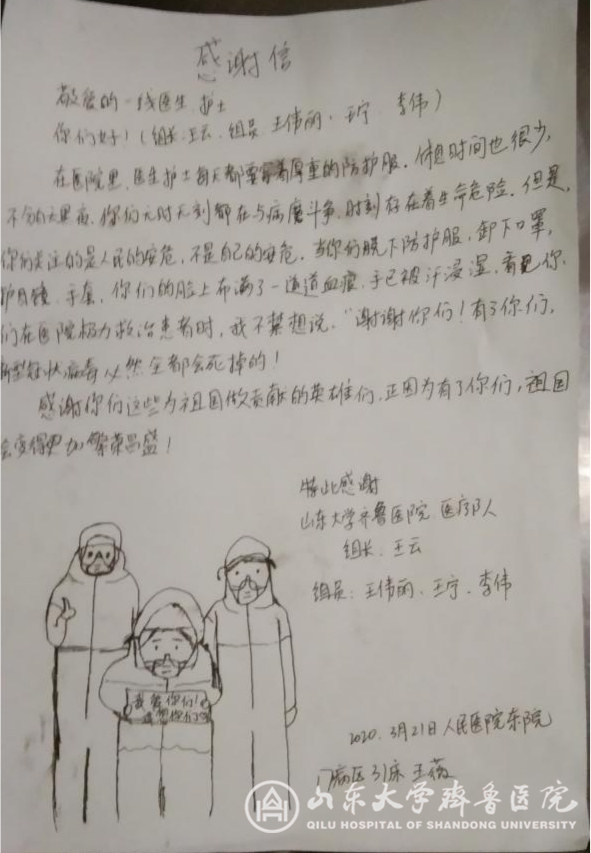 感谢信
敬爱的一线医生、护士
你们好!(组长.王云.组员 王伟丽、王宁、李伟)
在医院里,医生护士每天都要穿着厚重的防护服。休息时间也很少,
不分白天黑夜,你们无时无刻都在与病魔斗争,时刻存在着生命危险。但是,
你们关注的是人民的安危,不是自己的安危。当你们脱下防护服,卸下口罩,
护目镜、手套,你们的脸上布满了一道道血痕,手已被汗浸湿,看见你
们在医院极力救治患者时,我不禁想说,“谢谢你们!有了你们,
新型冠状病毒必然全都会死掉的!
感谢你们这些为祖国做贡献的英雄们,正因为有了你们,祖国
会变得更加繁荣昌盛!
特此感谢
山东大学齐鲁医院 医疗队人
组长、王云
组员:王伟丽、王宁、李伟
我爱你们!
你们
2020.3月21日人民医院东院
病区 31床 王薇
山东大学齊鲁医院
QILU HOSPITAL OF SHANDONG UNIVERSITY